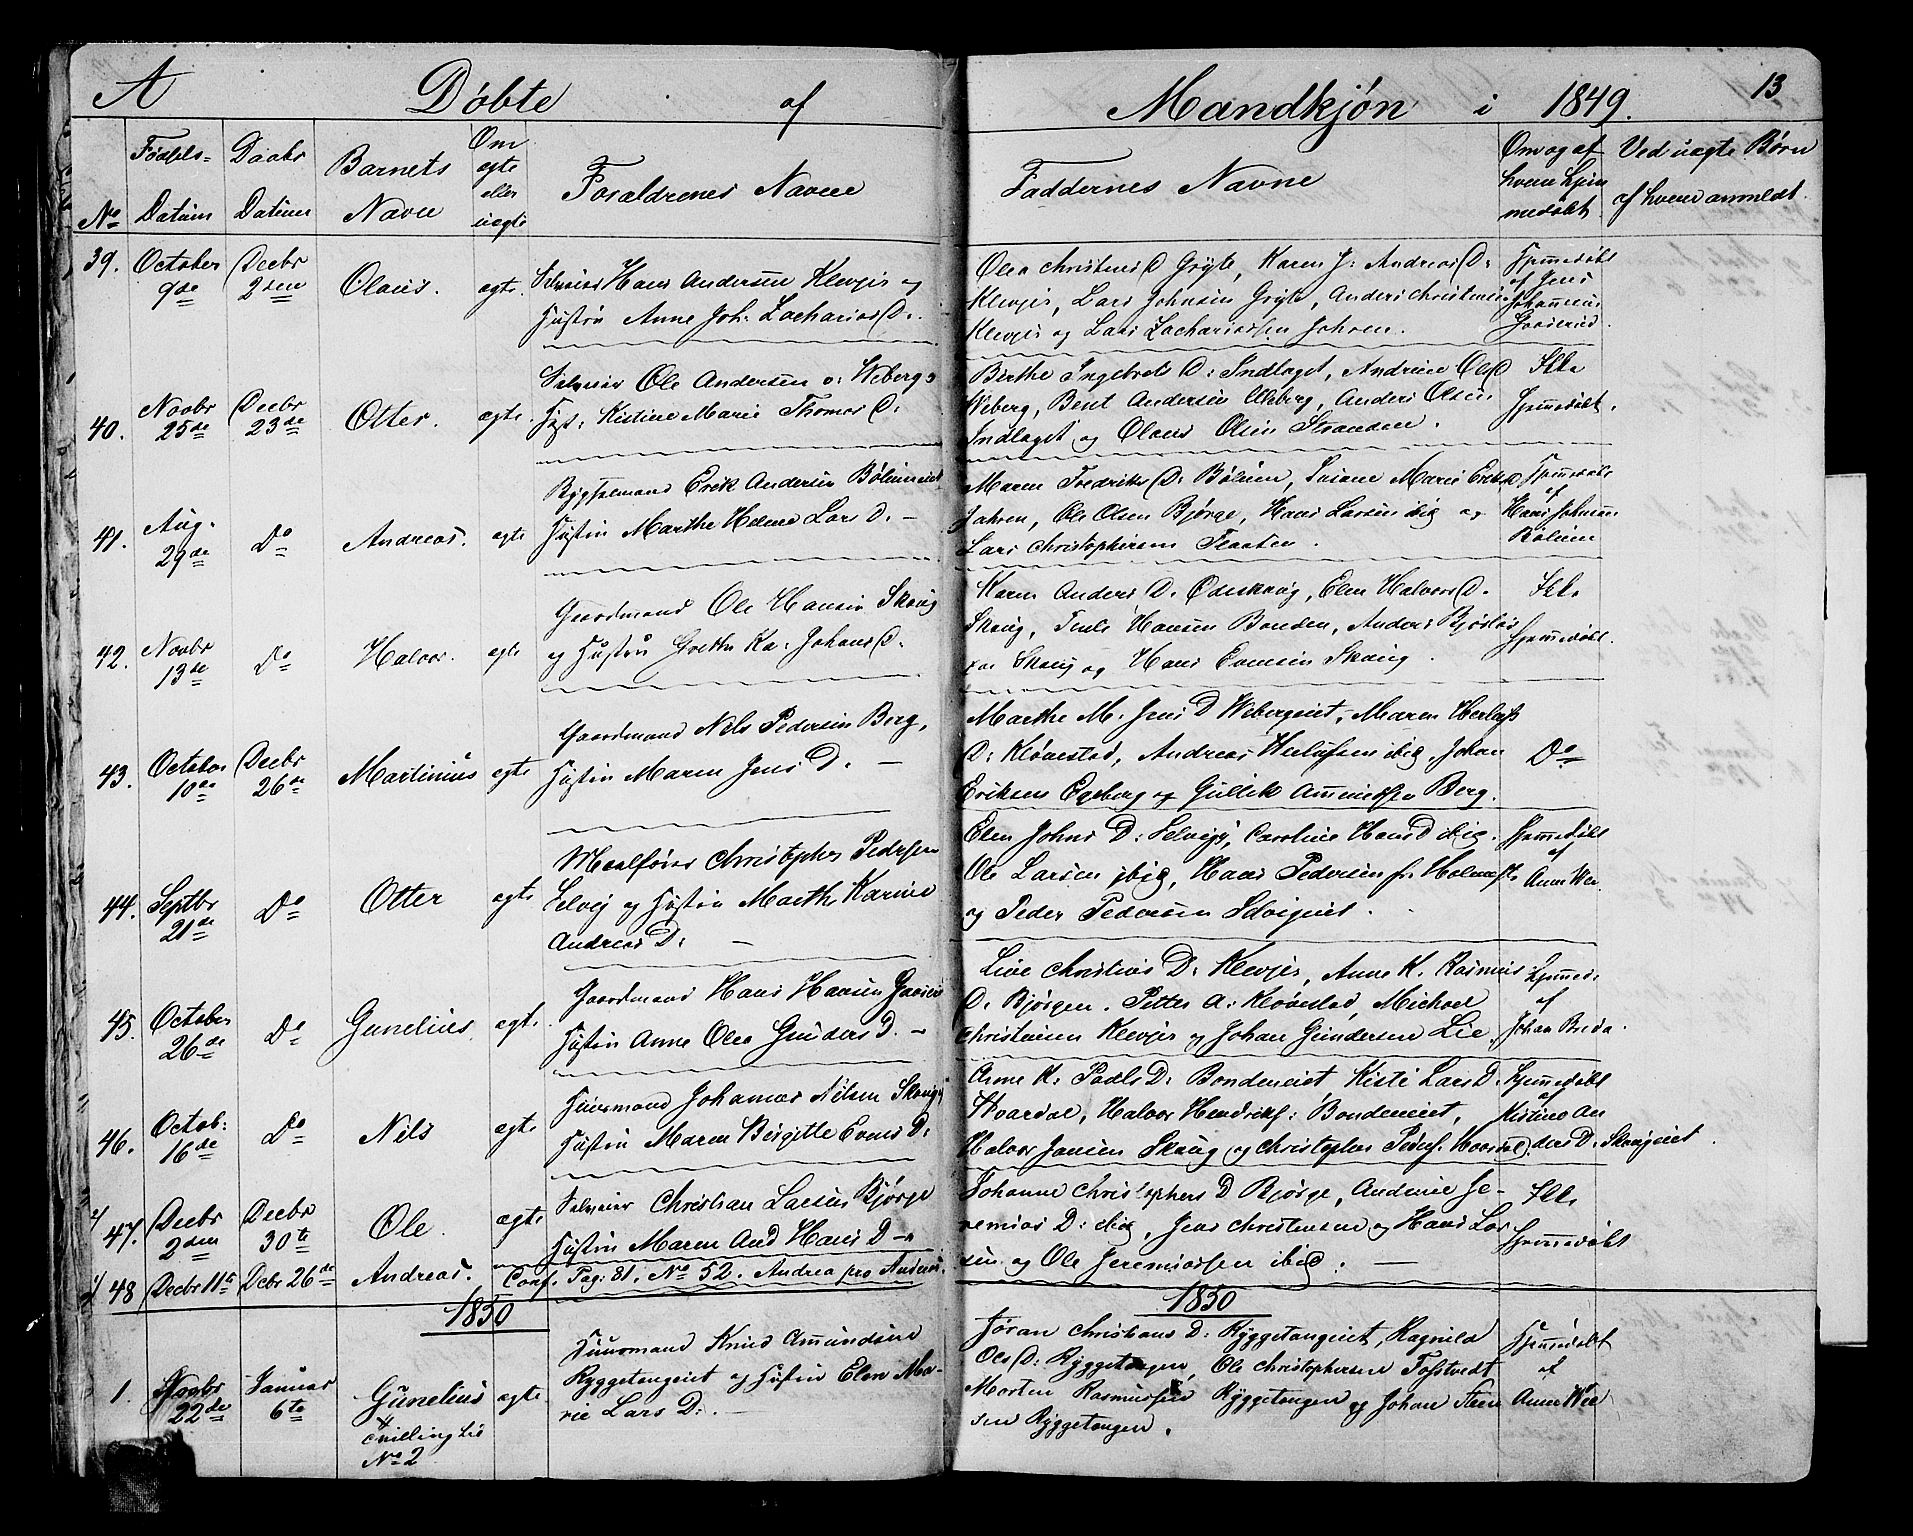 A Døbte af Mandkjøn i 1849. 13
No Fødsels-Datum Daabs Datum Barnets Navn Om egte eller uegte Forældrenes Navne Faddernes Navne Om og af hvem hjemmedøbt Ved uegte Børn af hvem anmeldt.
39. October 9de Decbr 2den Olaus. egte.
Selveier Hans Andersen Klevjer og
Hustru Anne Joh. Zacharias D.
Olea Christens D Gryte, Karen J. Andreas D:
Klevjer, Lars Johnsen Gryte, Anders Christensen
Klevjer og Lars Zachariassen Jahren.
Hjemmedøbt
af Jens
Johannes
40. Novbr 25de Decbr 23de Otter. egte.
Selveier Ole Andersen o: Weberg o
Hust: Kistine Marie Thomas D.
Berthe Ingebrets D: Indlaget, Andrine Ols D
Weberg, Bent Andersen Weberg, Anders Olsen
Indlaget og Olaus Olsen Stranden.
Ikke
hjemmedøbt.
41. Aug. 29de Do Andreas. egte
Bygselmand Erik Andersen Bølumeiet
Hustru Marthe Helene Lars D. -
Maren Fredriks D: Bølum, Susane Marie Eriks D
Jahren, Ole Olsen Bjørge, Hans Larsen ibid og
Lars Christophersen Plaaten.
Hjemmedøbt
af
Hans Johnsen
Bølum
42. Novbr 13de Do Halvor. egte
Gaardmand Ole Hansen Skoug
og Hustru Grethe Ka: Johans D.
Karen Anders D. Ødeskoug, Elen Halvors D.
Skoug, Hansen Bonden, Anders
Skoug og Hans Evensen Skoug.
Ikke
hjemmedøbt.
43. October 10de Decbr 26de Martinius egte
Gaardmand Nels Pedersen Berg,
Hustru Maren Jens D. -
Marthe M. Jens D Webergeiet, Maren Herlofs
D: Kløvestad, Andreas Herlofsen ibid, Johan
Eriksen Egeberg og Gullik Amundsen Berg.
Do
44. Septbr 21de Do Otter egte
Christopher Pedersen
Selvig og Hustru Marthe Karine
Andreas D: -
Elen Johns D: Selvig, Caroline Hans D ibid.
Ole Larsen ibid, Hans Pedersen fr. Holmsft
og Peder Pedersen Selvigeiet.
Hjemmedøbt
af
Anne Wee.
45. October 26de Do Gunelius egte
Gaardmand Hans Hansen
Hustru Anne Olea Gunders D. -
Live Christians D: Klevjer, Anne K. Rasmus
D. Bjørgen, Petter A. Kløvestad, Michael
Christensen Klevjer og Johan Gundersen Lie.
Hjemmed.
af
Johan Breda.
46. Octob: 16de Do Nils egte
Huusmand Johannes Nilsen Skoug
Hustru Maren Birgitte Evens D:
Anne K: Poels D: Bondeneiet Kisti Lars D.
Hvardal, Halvor Hendriks: Bondeneiet,
Halvor Jansen Skoug og Christopher Peders. Hvardal.
hjemmedøbt
af
Kistine An
ders D. Skougeiet.
47. Decbr 2den Decbr 30te Ole. egte
Selveier Christian Larsen Bjørge
Hustru Maren And Hans D -
Johanne Christophers D Bjørge, Andrine Je-
remias D: ibid, Jens Christensen og Hans Lar
sen og Ole Jeremiassen ibid. -
Ikke
hjemmedøbt
48 Decbr 11te Debr 26de Andreas. Conf. Pag: 81. No 52. Andrea pro Andreas.
1850 1850
1. Novbr 22de Januar 6te Gunelius egte.
Tvilling Lie
No 2
Huusmand Knud Amundsen
Ryggetangeiet og Hustru Elen Ma-
rie Lars D: -
Jøran Christians D: Ryggetangeiet, Ragnild
Ols D: Ryggetangen, Ole Christophersen Tofstvedt
Morten Rasmussen Ryggetangen og Johan Steen
sen Ryggetangen.
Hjemmedøbt
af
Anne Wee